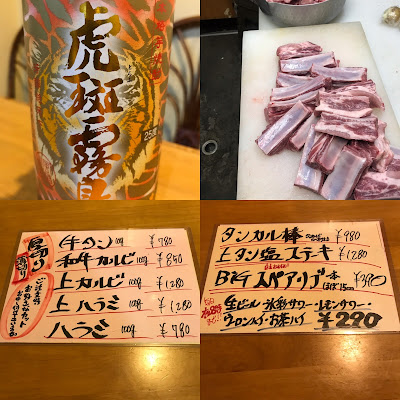 虎斑霧島
25度
厚切り
牛タン 100g ¥780
和牛カルビ 100g ¥850
上カルビ 100g ¥1280
上ハラミ 100g ¥1280
ハラミ 100g ¥780
タンカル棒 ¥980
上タン塩ステーキ ¥1280
BIGスペアリブ 一本 ¥390
ほぼ15cm
生ビール・氷彩サワー・レモンサワー・
ウーロンハイ・お茶ハイ ¥290